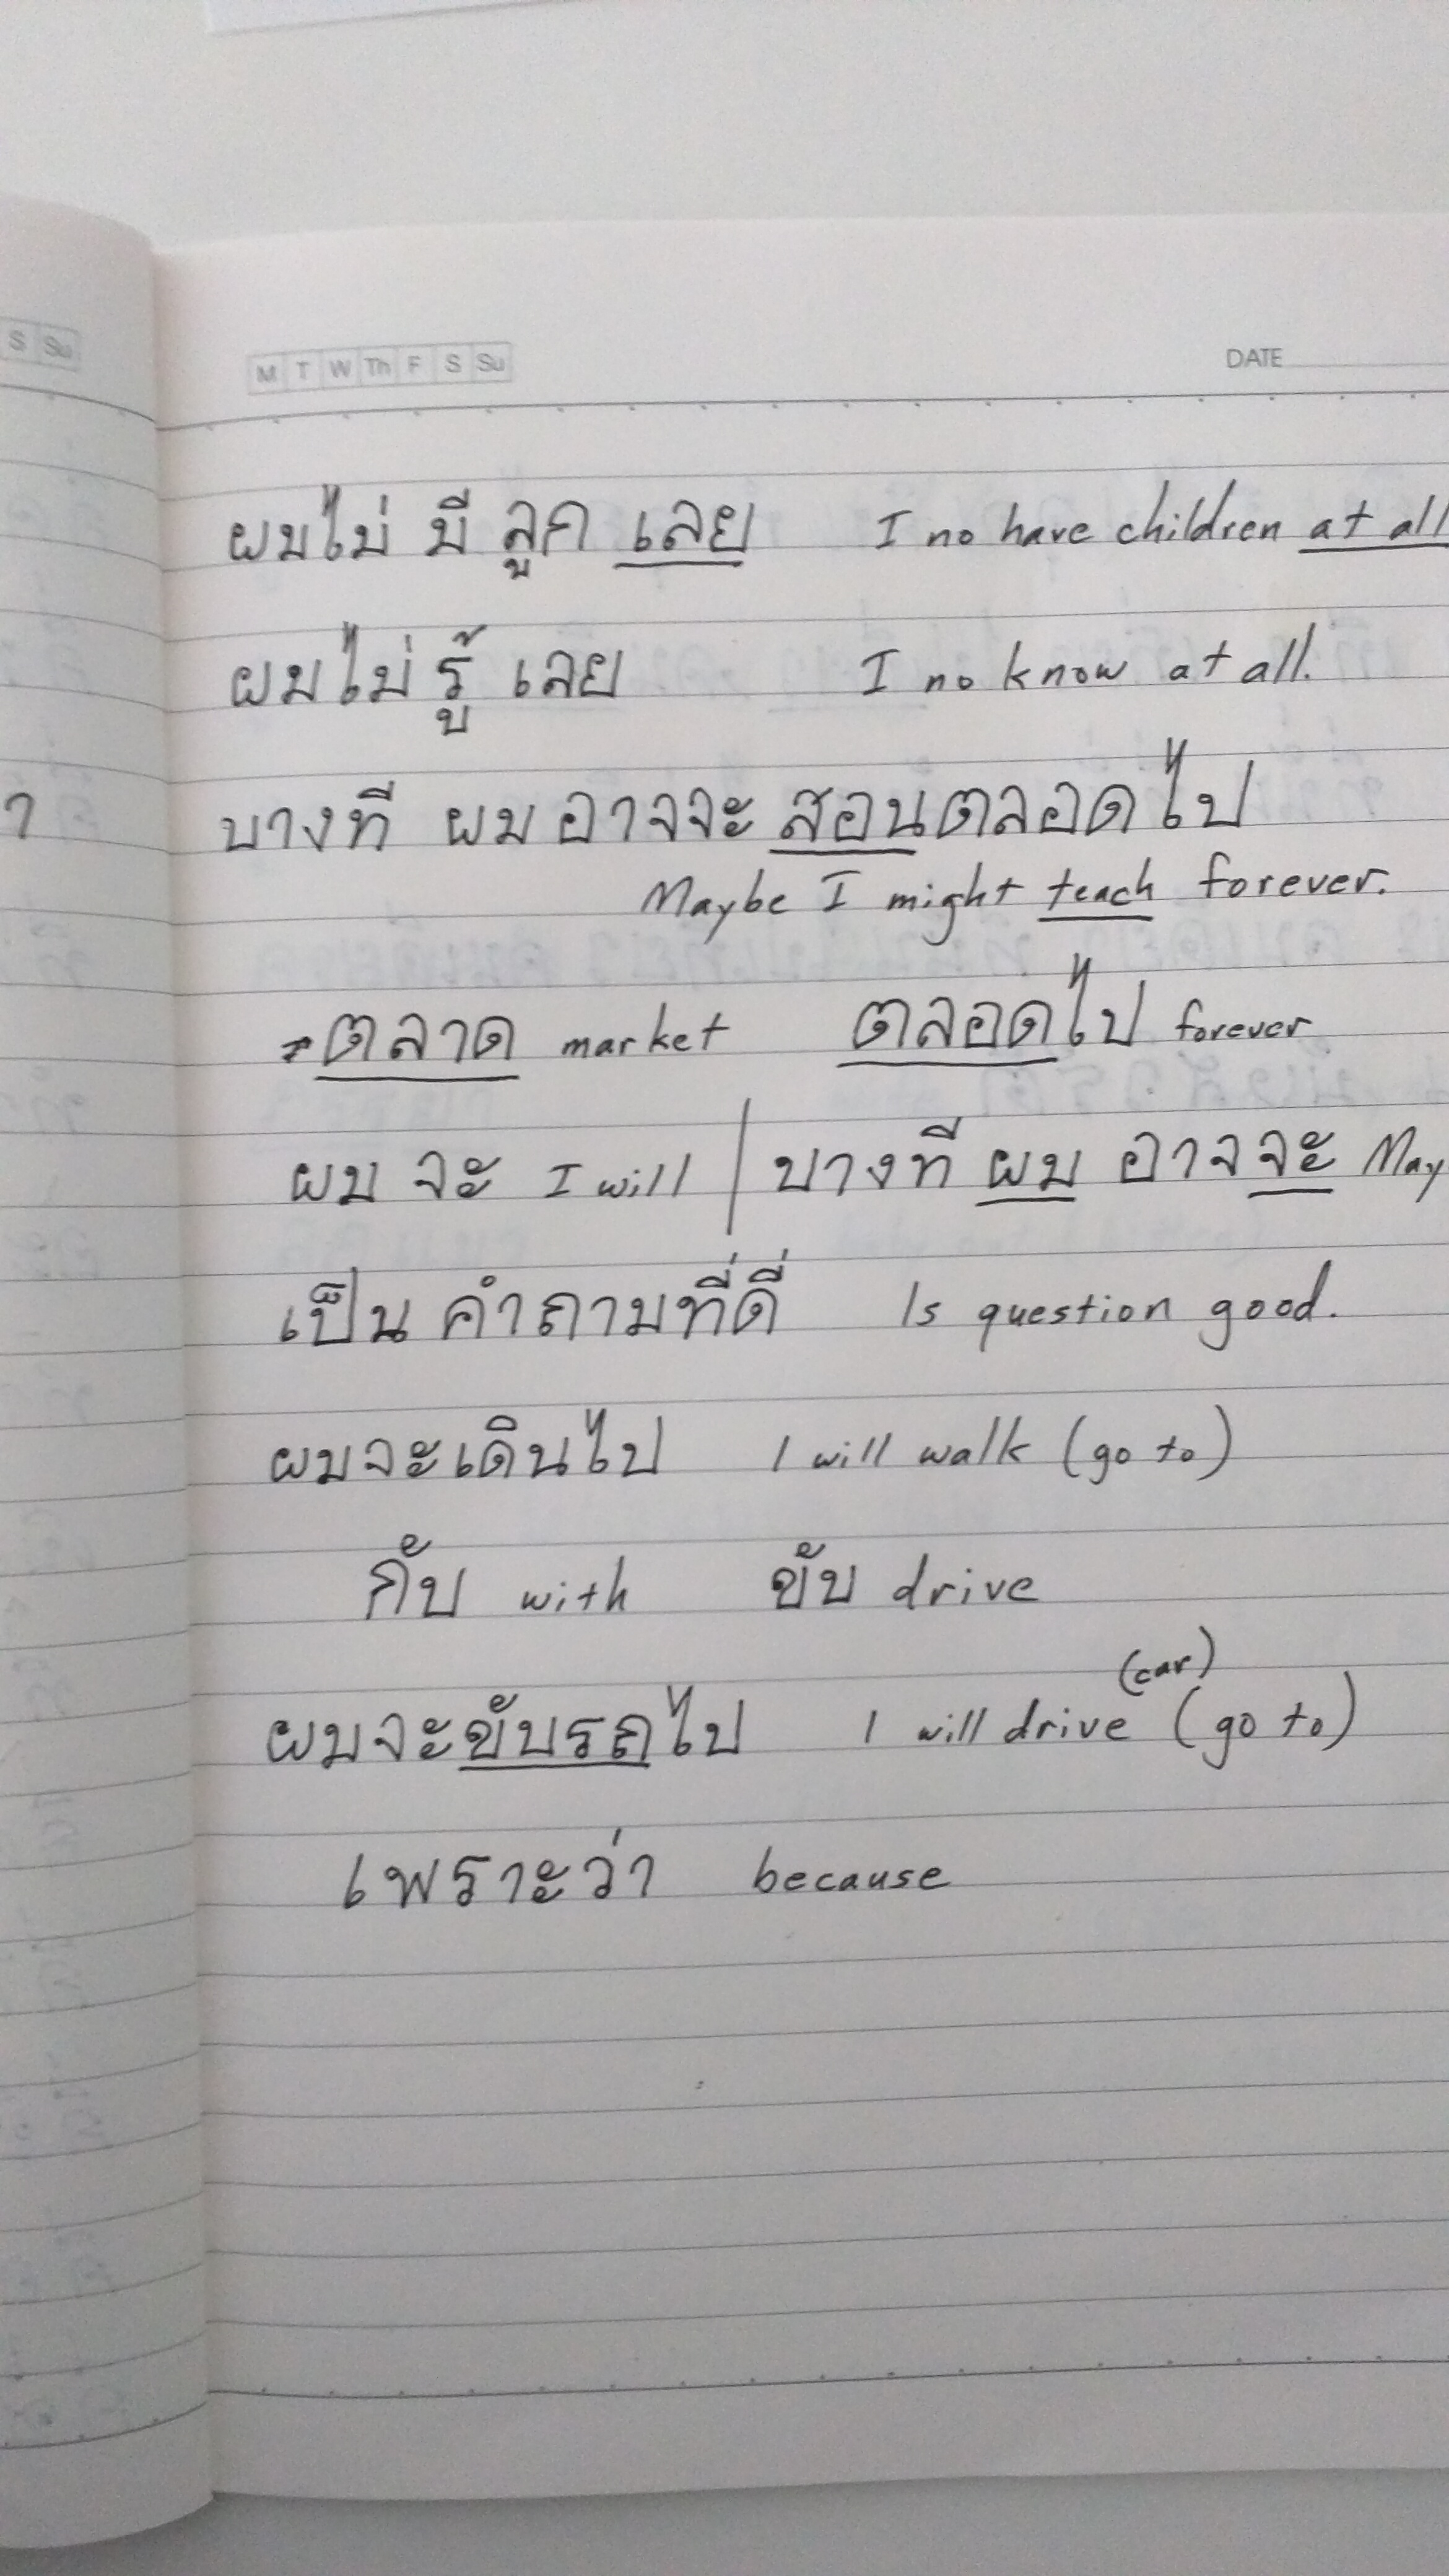 S Su
M T W Th F S Su DATE
ผมไม่ มี ลูก เลย I no have children at all
ผมไม่ รู้ เลย I no know at all.
า
บางที ผม อาจจะ สอนตลอดไป
Maybe I might teach forever.
ตลาด market ตลอดไป forever
ผม จะ I will | บางที ผม อาจจะ May
เป็น คำถามที่ดี่ Is question good.
ผมจะเดินไป I will walk (go to)
กับ with ขับ drive
(car)
ผมจะขับรถไป I will drive (go to)
เพราะว่า because